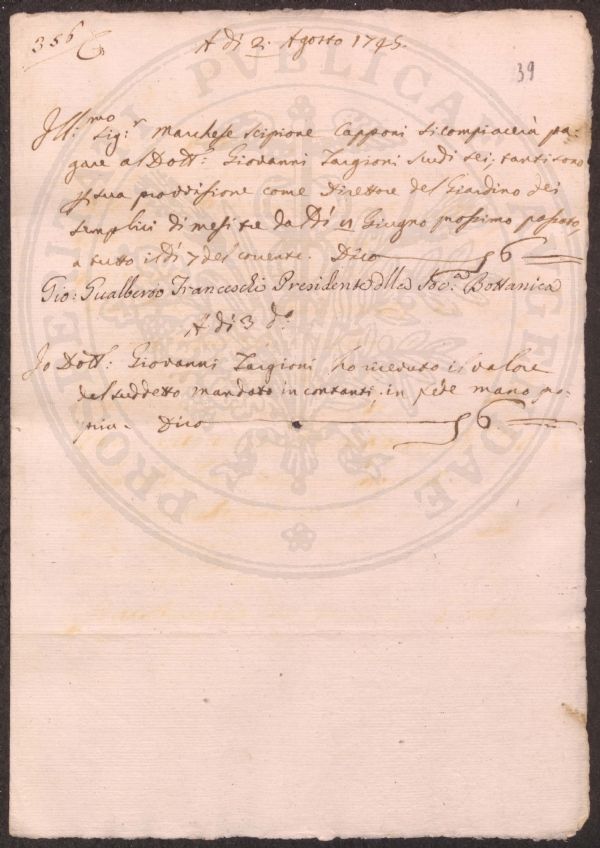 356
A dì 2. Agosto 1745.
39
Ill:mo Sig:r Marchese Scipione Capponi si compiacerà pa=
gare al Dott: Giovanni Targioni scudi sei, tanti sono
p sua provvisione come Direttore del Giardino dei
Semplici di mesi tre dal Dì Giugno prossimo passato,
a tutto il dì 7 del corrente. Dico 6
Gio: Gualberto Franceschi Presidente dlla Soc:a Bottanica
A dì 3 do
Io Dott: Giovanni Targioni ho ricevuto il valore
del suddetto mandato in contanti. in fede mano pro=
pria. Dico 6
PROSPERITATI PVBLICAE AVGENDAE